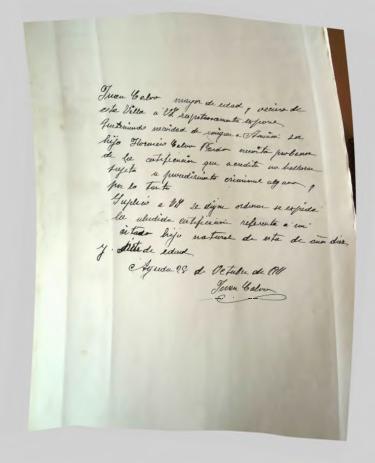 Juan Calvo mayor de edad, y vecino de
esta Villa a VS respetuosamente expone
que teniendo necesidad de su
hijo Calvo Pardo
de la certificación que acredite no hallarse
sujeto a procedimiento criminal alguno, y
por lo tanto
Suplico a VS se digne ordenar se expida
la aludida certificación referente a mi
citado hijo natural de esta de años diez
y siete de edad
28 de Octubre de
Juan Calvo